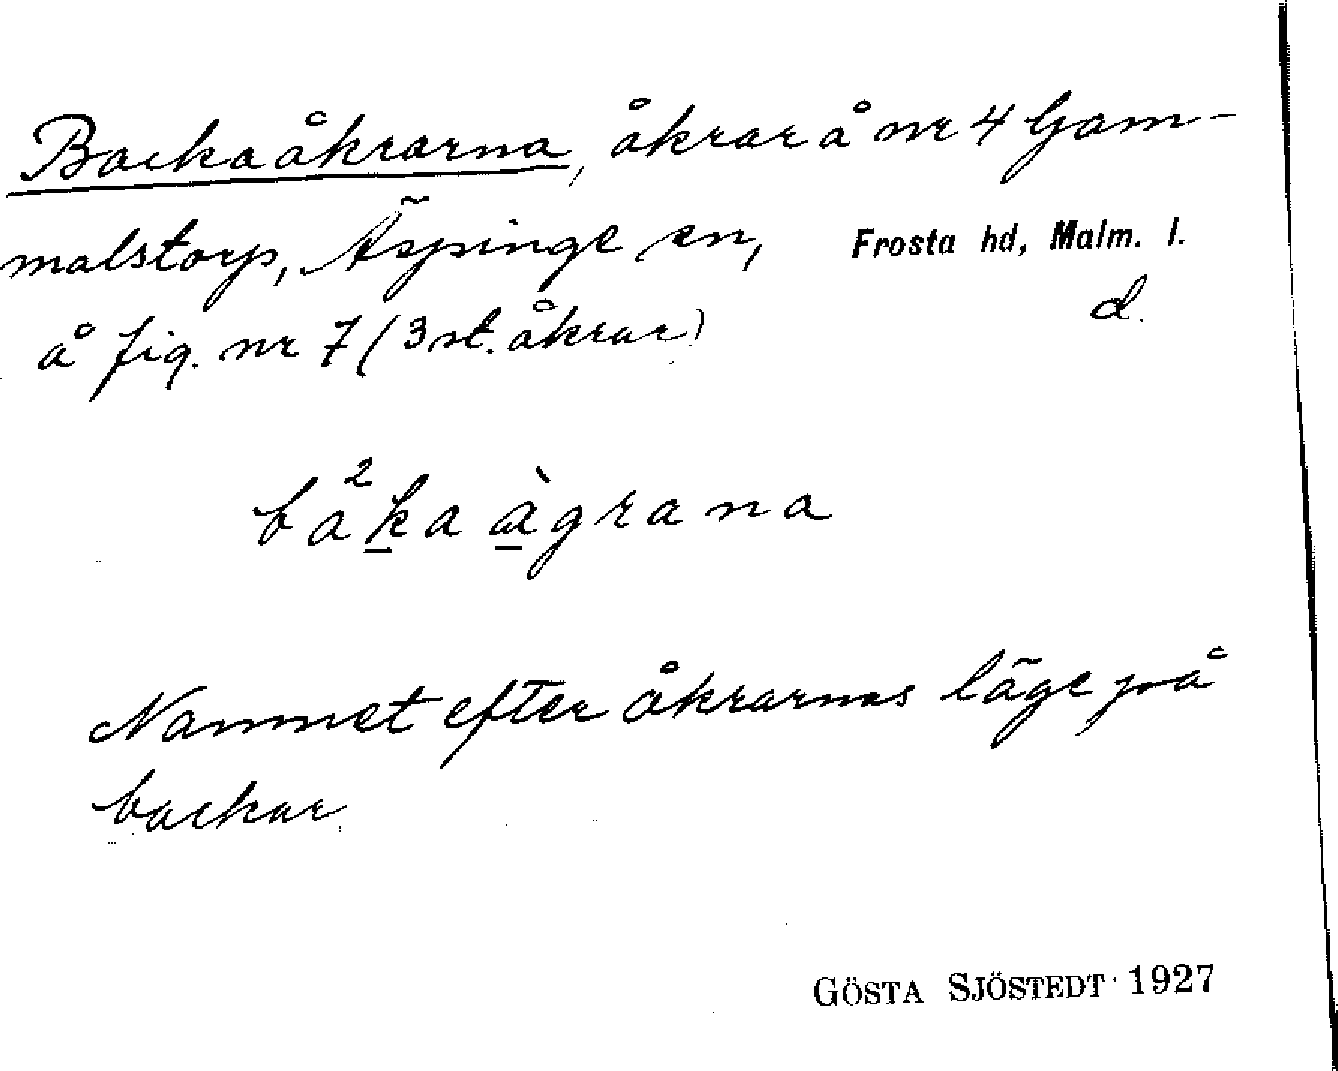 Backaåkrarna, åkrar å nr 4 Gam-
malstorp, Äspinge sn, Frosta hd, Malm. l.
å fig. nr 7 (3 st. åkrar) d.
ba²ka àgrana
Namnet efter åkrarnas läge på
backar.
GÖSTA SJÖSTEDT 1927